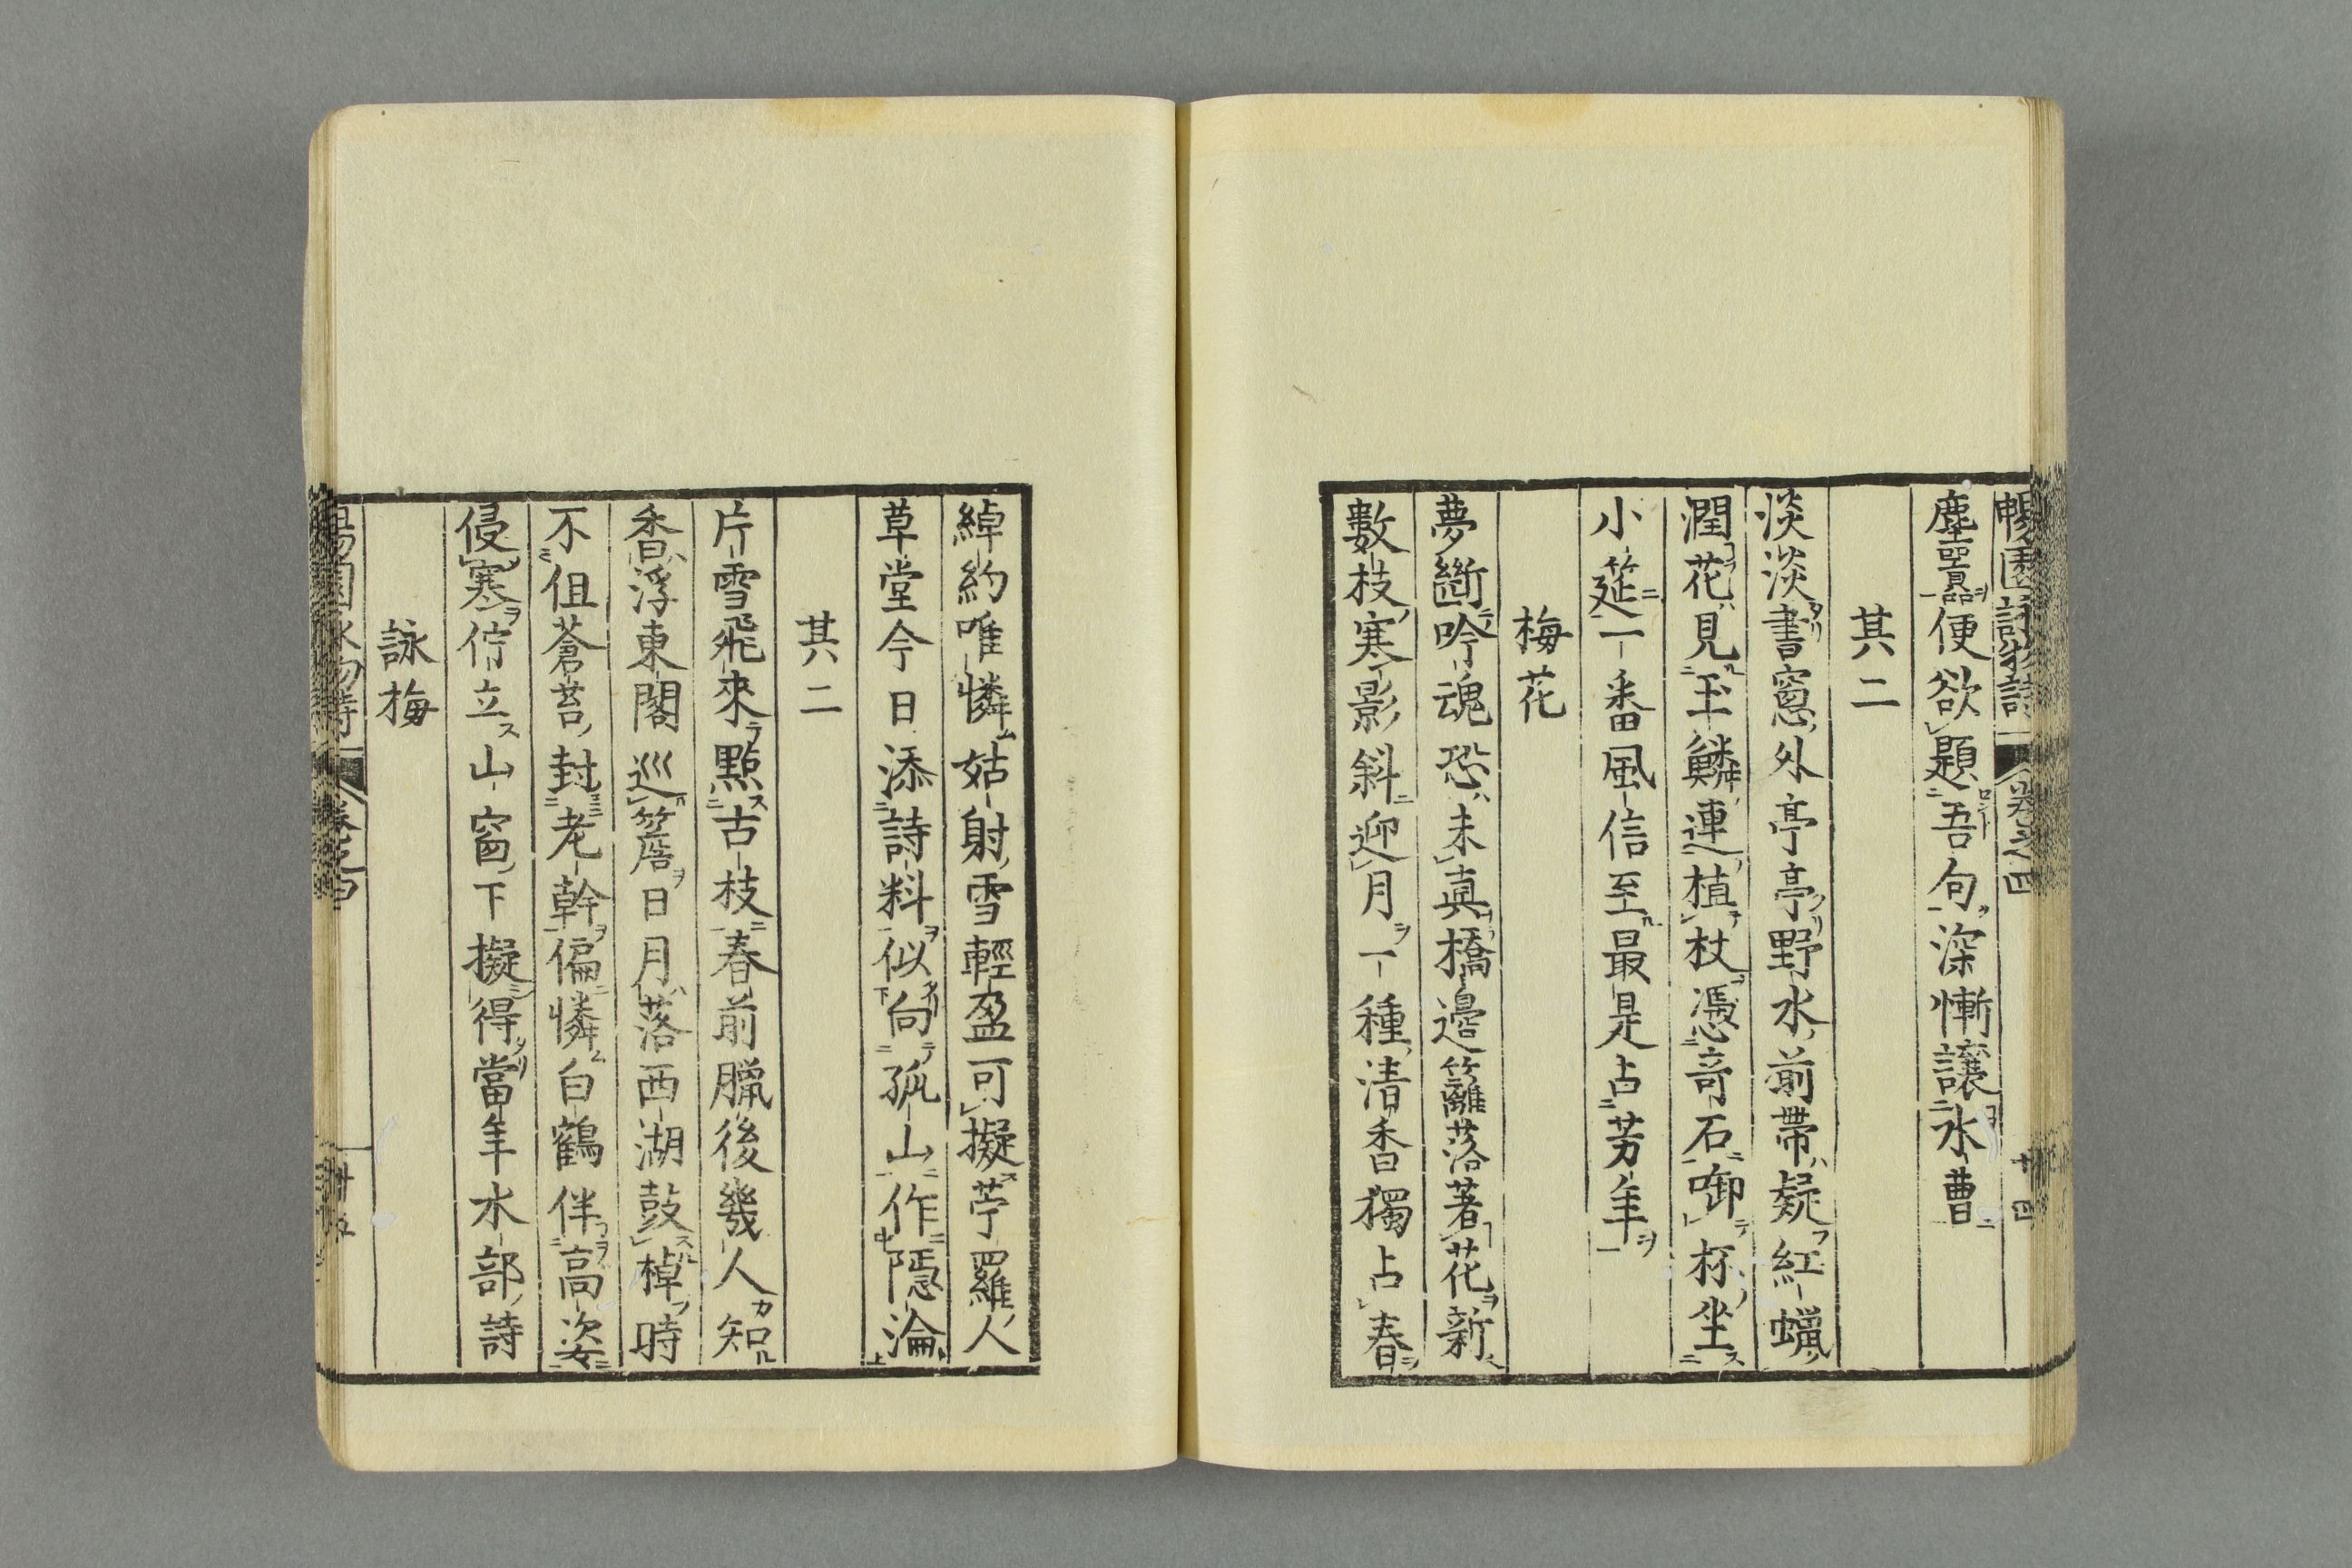 暢園詠物詩 卷之四 廿四
塵囂便欲題吾句深慚讓水曹
其二
淡淡書窻外亭亭野水前帶疑紅蠟
潤花見玉鱗連植杖憑奇石啣杯坐
小筵一番風信至最是占芳年
梅花
夢斷吟魂恐未真橋邊籬落著花新
數枝寒影斜迎月一種清香獨占春
綽約唯憐姑射雪輕盈可擬苧羅人
草堂今日添詩料似向孤山作隱淪
其二
片雪飛來點古枝春前臘後幾人知
香浮東閣巡簷日月落西湖鼓棹時
不但蒼苔封老幹偏憐白鶴伴高姿
侵寒佇立山窗下擬得當年水部詩
詠梅
暢園詠物詩 卷之四 廿五